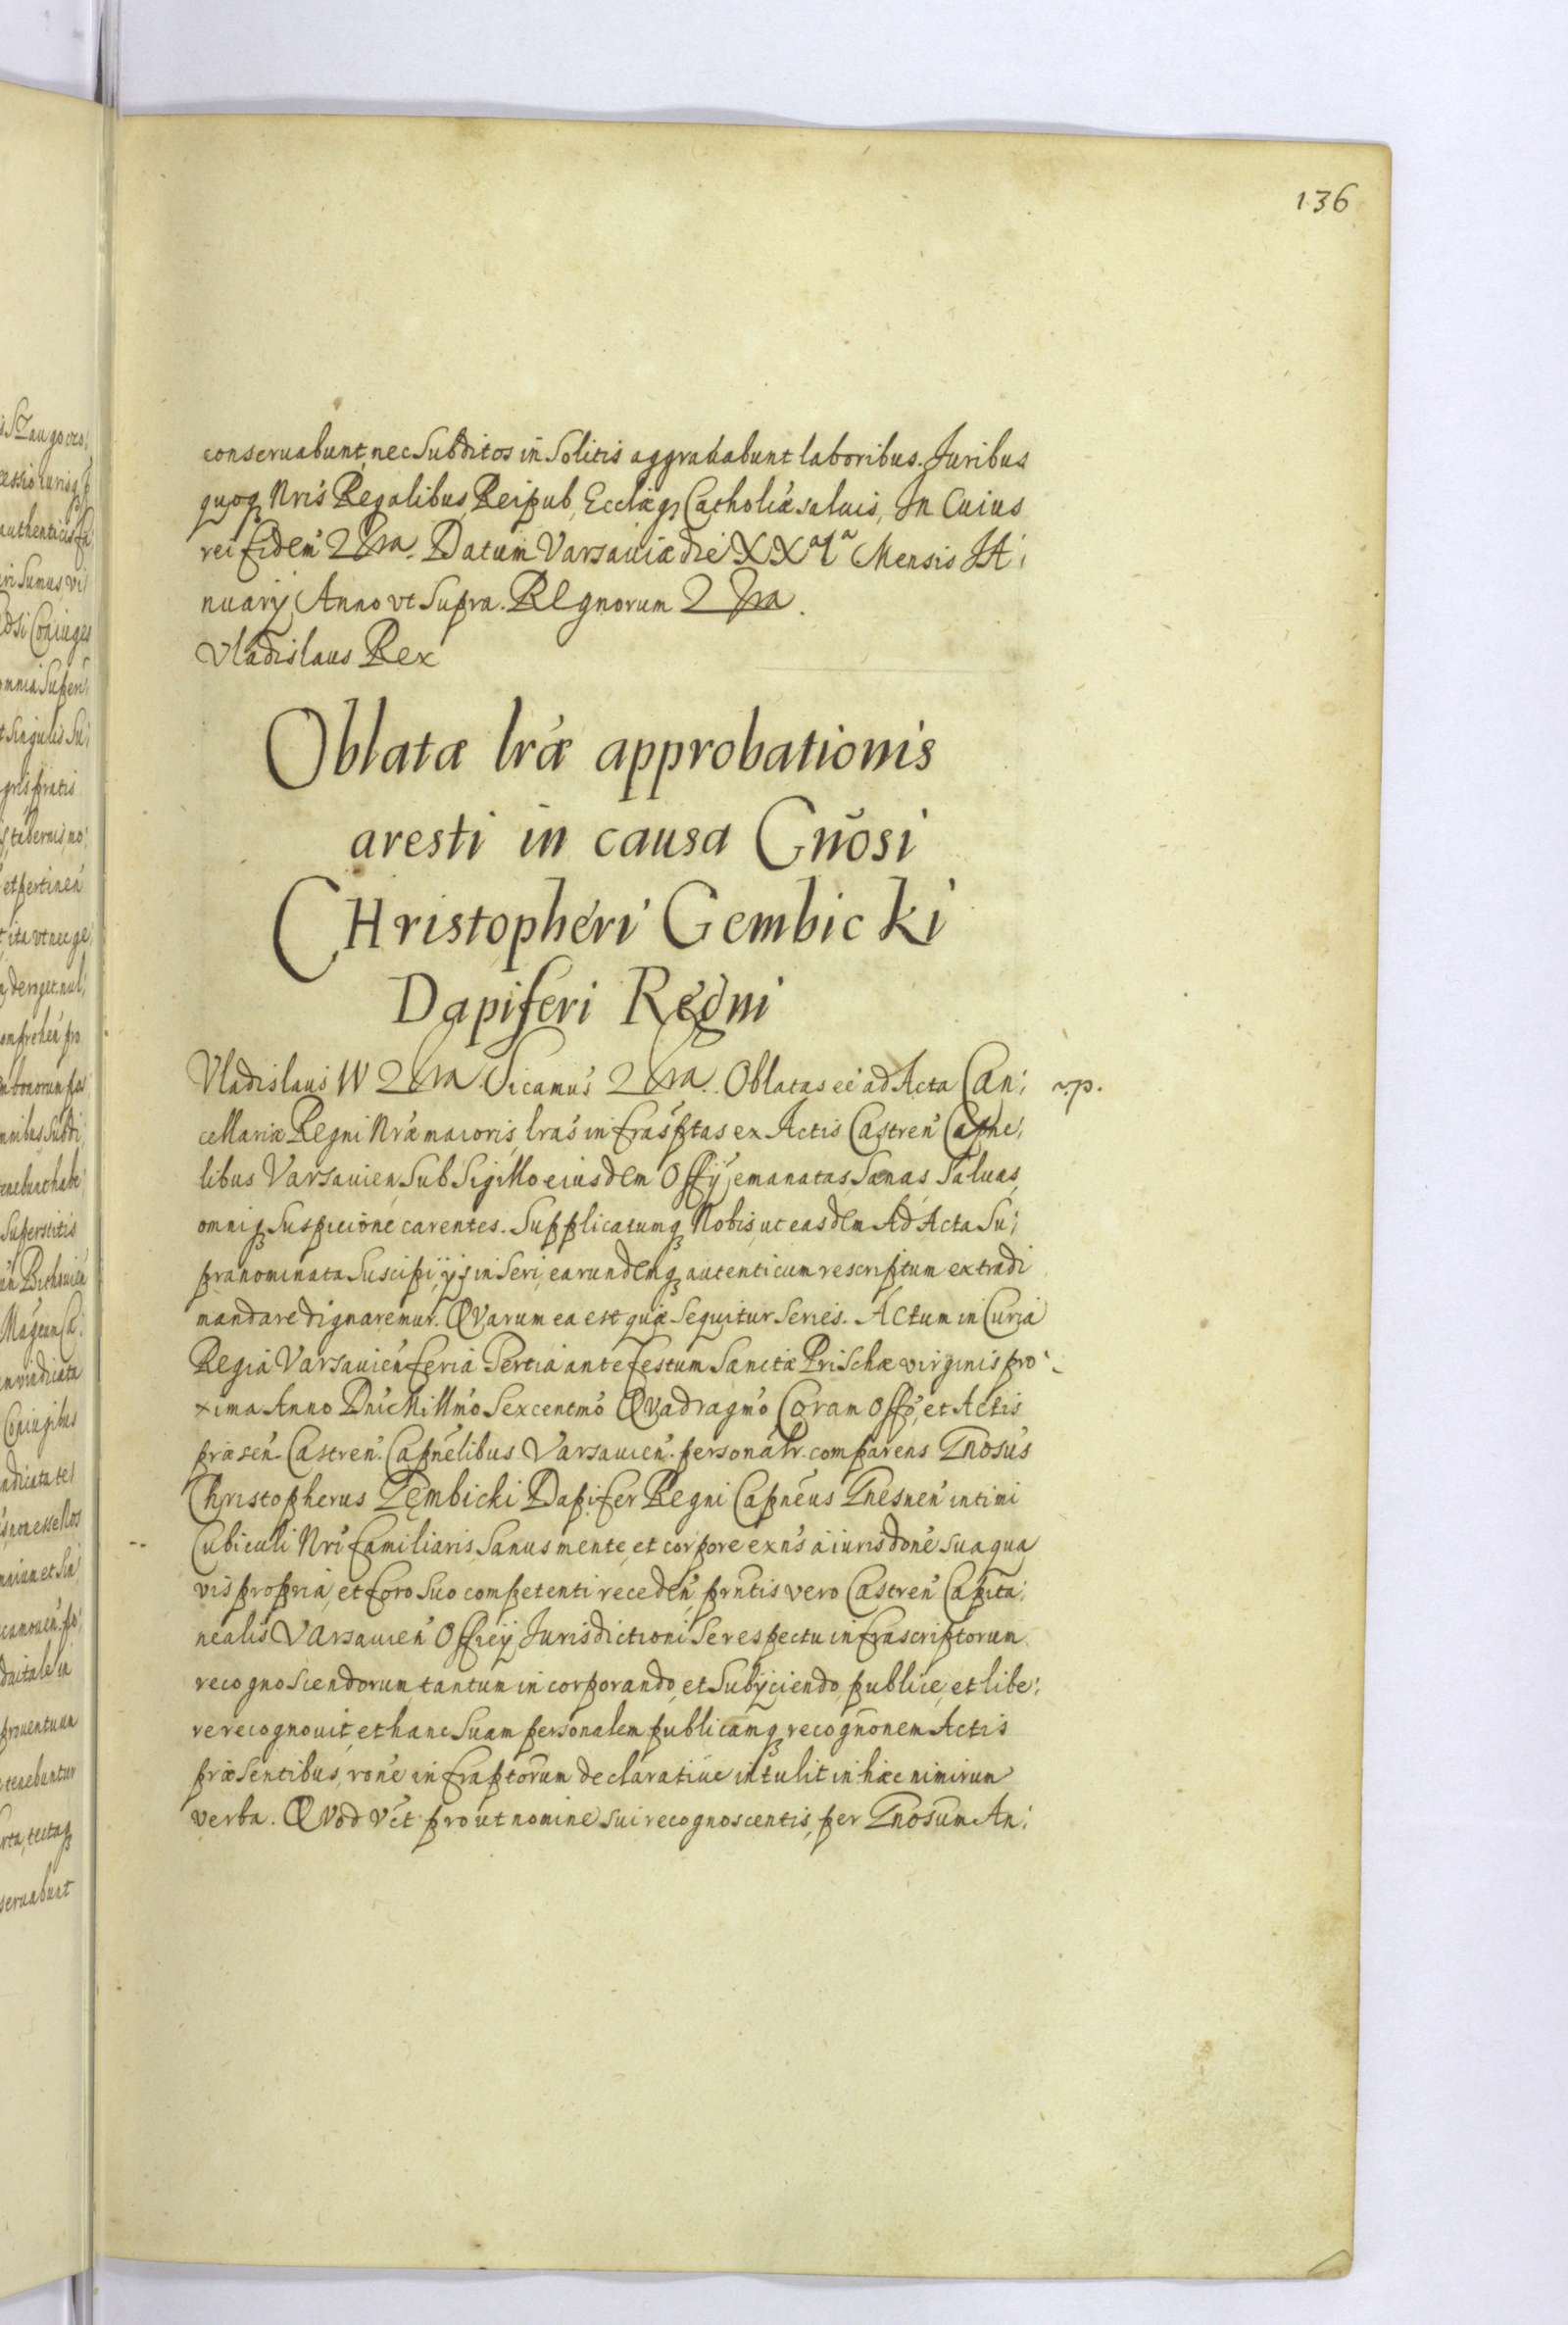 136
conseruabunt, nec Subditos in Solitis aggrauabunt laboribus. Juribus
quoq Nris Regalibus, Reipub, Ecclæq Catholicæ saluis, In Cuius
rei fidem 2 Dra. Datum Varsauiæ die XXªIª Mensis JA
nuarij Anno vt Supra. Regnorum 2 Dra.
Vladislaus Rex
Oblatæ lræ approbationis
aresti in causa Gnosi
CHristopheri Gembicki
Dapiferi Regni
Vladislaus IV 2 Dra. Sicamus 2 Dra. Oblatas eē ad Acta Can:
cellariæ Regni Nræ maioris, lras infrasptas ex Actis Castren Capne,
libus Varsauien Sub Sigillo eiusdem Offij emanatas, Sanas Saluas,
omniq Suspicione carentes. Supplicatumq Nobis, ut easdem Ad Acta Su:
pranominata Suscipi, ijsq inseri, earundemq autenticum rescriptum extradi
mandare dignaremur. QVarum ea est quæ Sequitur Series. ACtum in Curia
Regia Varsauien feria Tertia ante festum Sanctæ Prischæ virginis pro
xima Anno Dni Millmo Sexcentmo QVadragmo Coram Offo, et Actis
præsen. Castren. Capnelibus Varsauien. personalr. comparens Gnosus
Christopherus Gembicki Dapifer Regni Capneus Gnesnen intimi
Cubiculi Nri familiaris, Sanus mente, et corpore exns a iurisdone sua qua
vis propria, et foro Suo competenti receden, prntis vero Castren Capita:
nealis Varsauien Officij Jurisdictioni Se respectu infrascriptorum
recognoscendorum tantum incorporando, et Subijciendo, publice, et libe:
re recognouit, et hanc Suam personalem publicamq recognonem Actis
præsentibus, rone infraptorum declaratiue intulit in hæc nimirum
verba. QVod vet prout nomine sui recognoscentis, per Gnosum An: